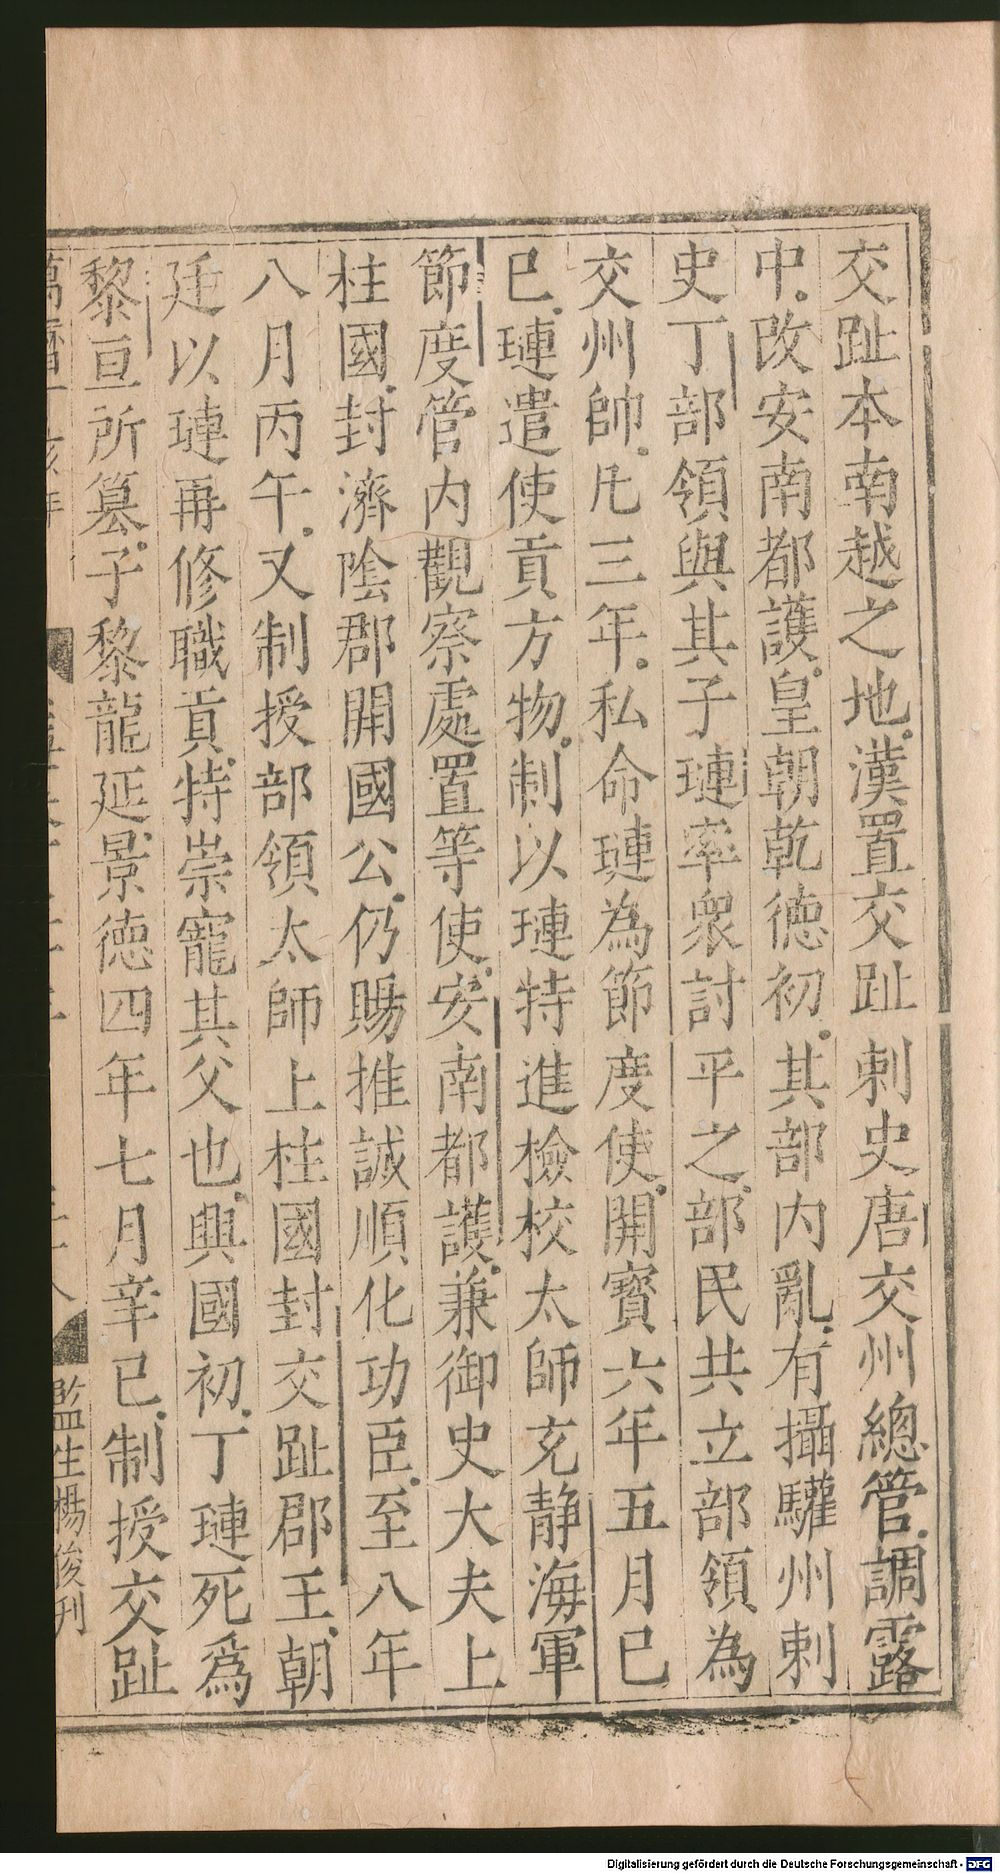 交趾本南越之地漢置交趾刺史唐交州總管調露
中改安南都護皇朝乾德初其部内亂有攝驩州刺
史丁部領與其子璉率衆討平之部民共立部領為
交州帥凡三年私命璉為節度使開寳六年五月己
巳璉遣使貢方物制以璉特進檢校太師充静海軍
節度管内觀察處置等使安南都護兼御史大夫上
柱國封濟陰郡開國公仍賜推誠順化功臣至八年
八月丙午又制授部領太師上柱國封交趾郡王朝
廷以璉再修職貢特崇寵其父也興國初丁璉死爲
黎亘所篡子黎龍延景德四年七月辛巳制授交趾
監生楊俊刊
Digitalisierung gefördert durch die Deutsche Forschungsgemeinschaft - DFG